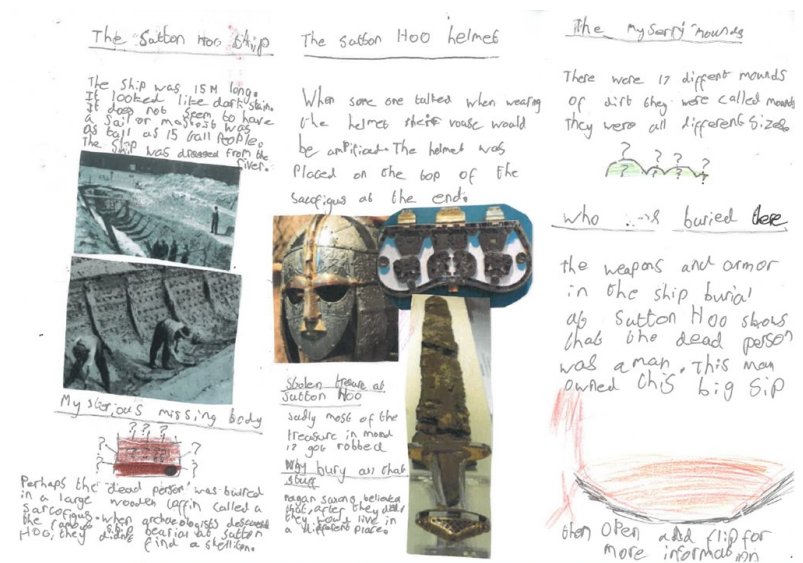 The Sutton Hoo Ship
The Ship was 15 M long.
It looked like dark stain.
It does not seem to have
a sail or mast it was
as tall as 15 tall people.
The Ship was dragged from the
river.
Mysterious missing body
? ? ?
? ?
? ?
? ?
Perhaps the 'dead person' was buired
in a large wooden coffin called a
sarcofigus. when archaeologises
the famous ship bearial at Sutton
HOO, they didnt find a skelliton.
The Sutton Hoo helmet
When some one talked when wearing
the helmet their vouse would
be amplificed. The helmet was
Placed on the top of the
sarcofigus at the end.
Stolen tresure at
Sutton Hoo
sadly most of the
treasure in mound
12 got robbed
Why bury all that
stuff
pagan saxons believed
that after they died
they would live in
a different place.
The myserry mounds
There were 17 diffent mounds
of dirt they were called mounds
they were all different Sizes.
? ? ? ?
? ? ? ?
who buried there
the weapons and armor
in the ship burial
at Sutton Hoo shows
that the dead person
was a man. This man
owned this big Sip
then open add flip for
more information